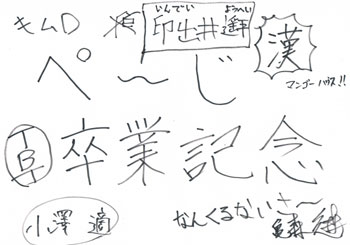 キムD
いんでい ようへい
印出井遥
漢
ぺ〜じ
マンゴーハウス!!
TBT
卒業記念
小澤 適
なんくるないさ〜